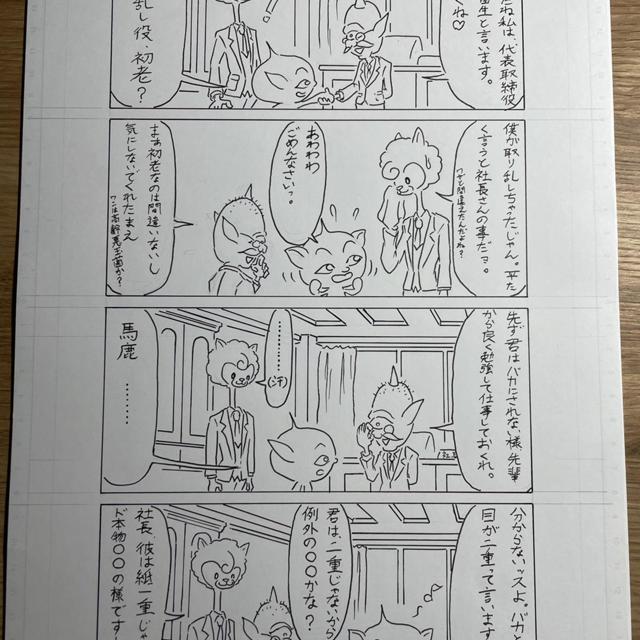 だね私は、代表取締役
留生と言います。
くね♡
!
乱し役、初老？
僕が取り乱しちゃったじゃん。平た
く言うと社長さんの事だヨ。
ワザと間違えたんだよね？
あわわわ
ごめんなさいっ。
まぁ初老なのは間違いないし
気にしないでくれたまえ
先ず君はバカにされない様、先輩
から良く勉強して仕事しておくれ。
………
(汗)
馬鹿
………
分からないッスよ。バカ
目が二重って言います
君は、二重じゃないから
例外の〇〇かな？
社長、彼は紙一重じゃ
ド本物〇〇の様です